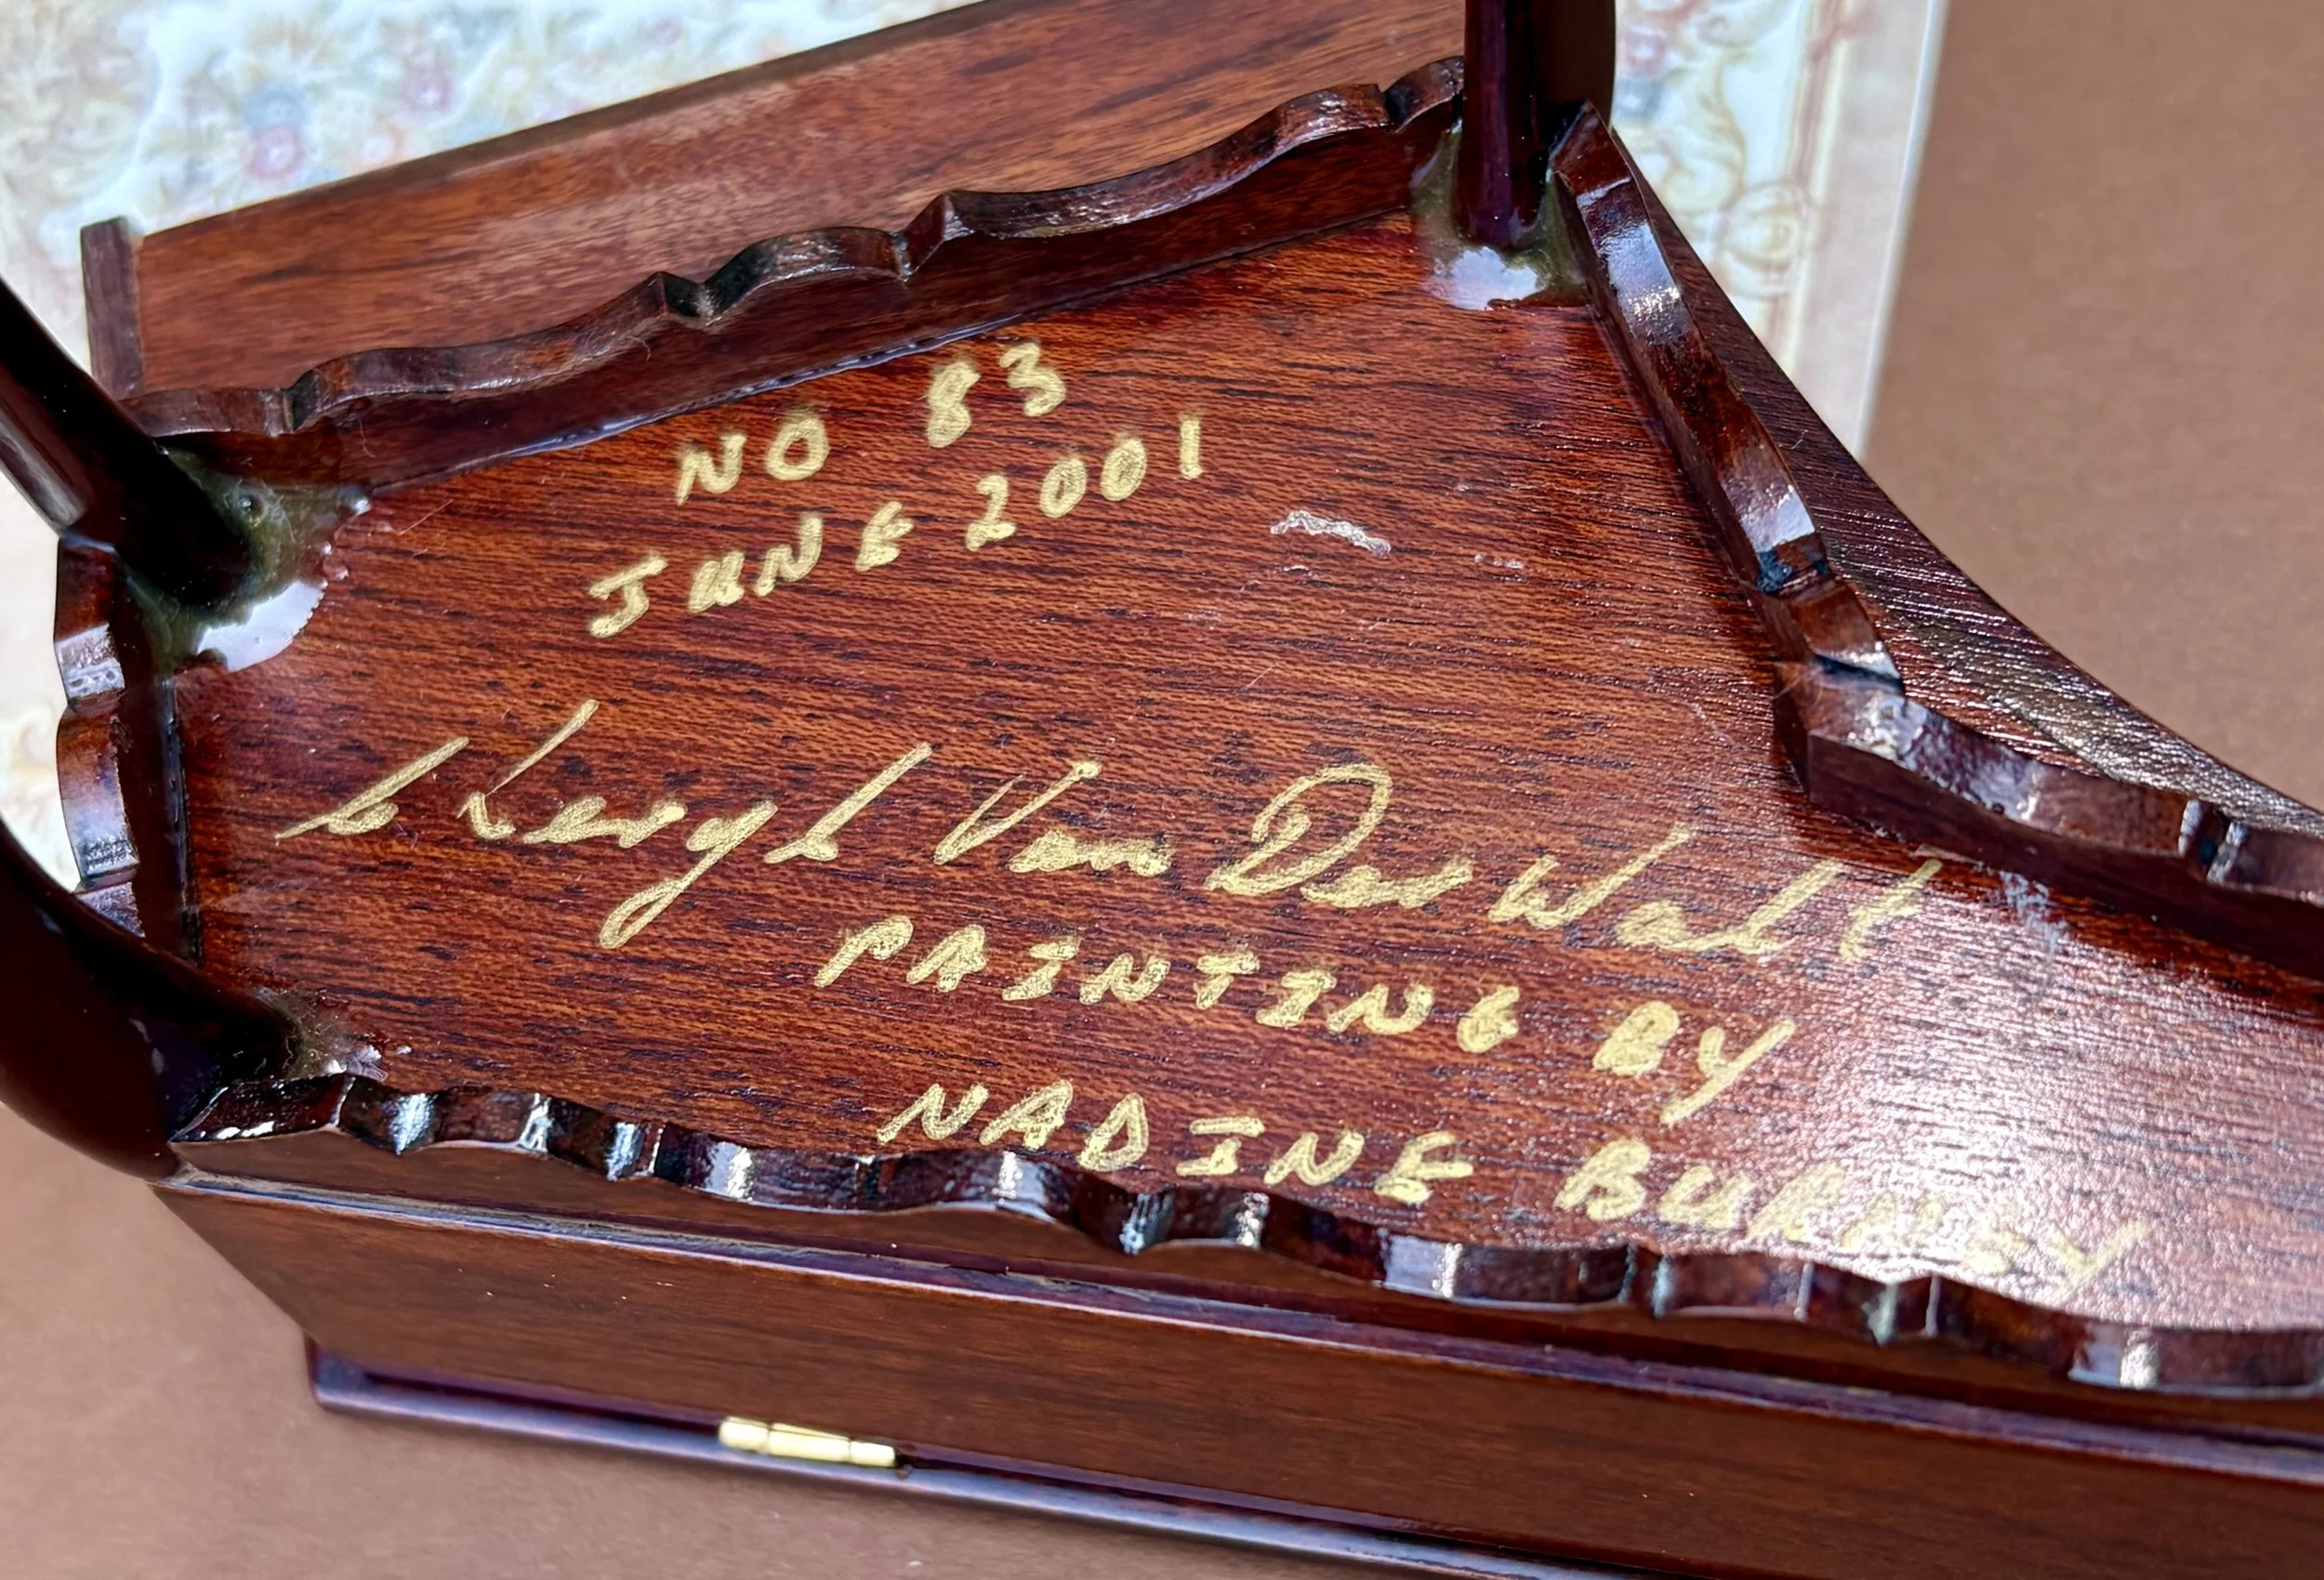 NO 83
JUNE 2001
Leigh Van Der Walt
PAINTING BY
NADINE BURNEY